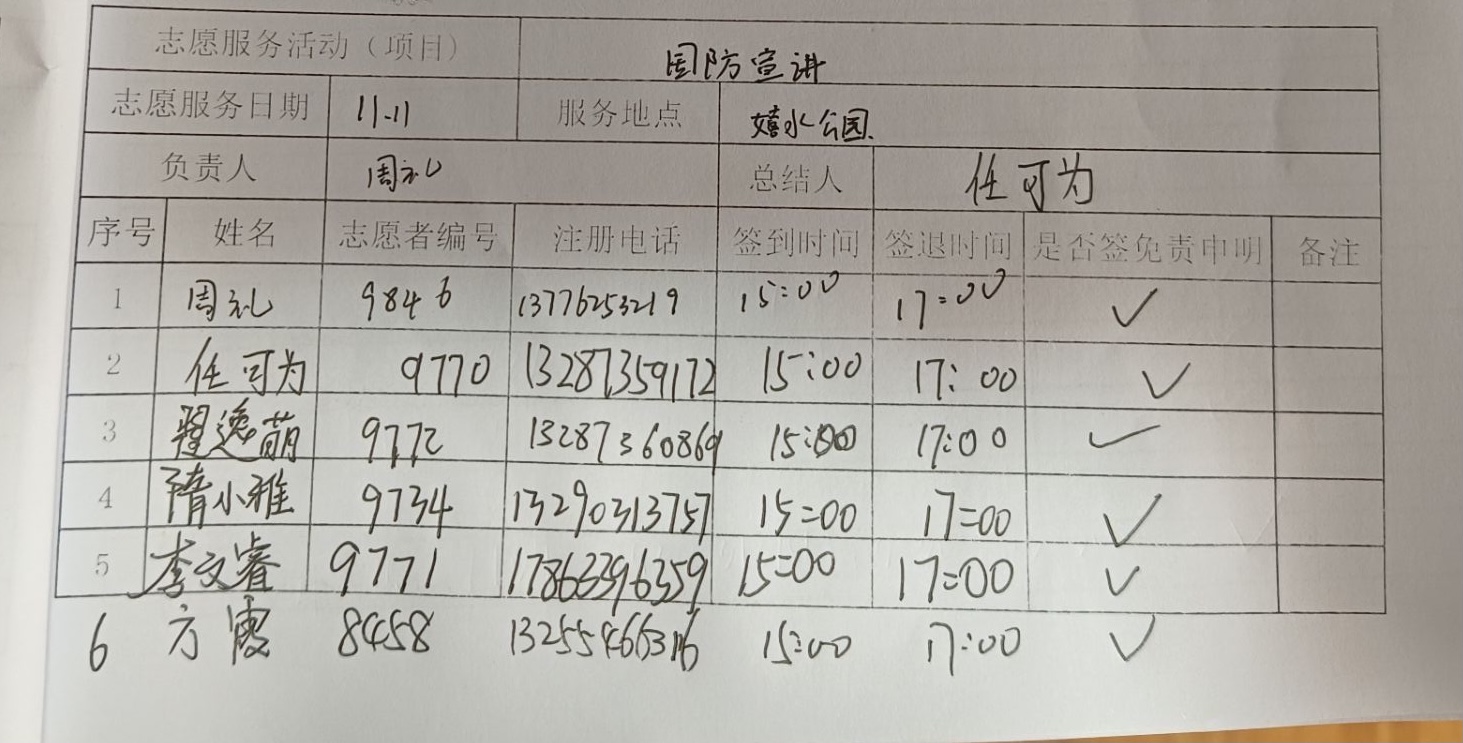 志愿服务活动（项目） 国防宣讲
志愿服务日期 11.11 服务地点 嬉水公园.
负责人 周礼 总结人 任可为
序号 姓名 志愿者编号 注册电话 签到时间 签退时间 是否签免责申明 备注
1 周礼 9846 13776253219 15:00 17:00 ✓
2 任可为 9770 13287359172 15:00 17:00 ✓
3 翟逸萌 9772 13287360869 15:00 17:00 ✓
4 隋小雅 9734 13290313757 15:00 17:00 ✓
5 李文睿 9771 17863396359 15:00 17:00 ✓
6 方霞 8458 15:00 17:00 ✓